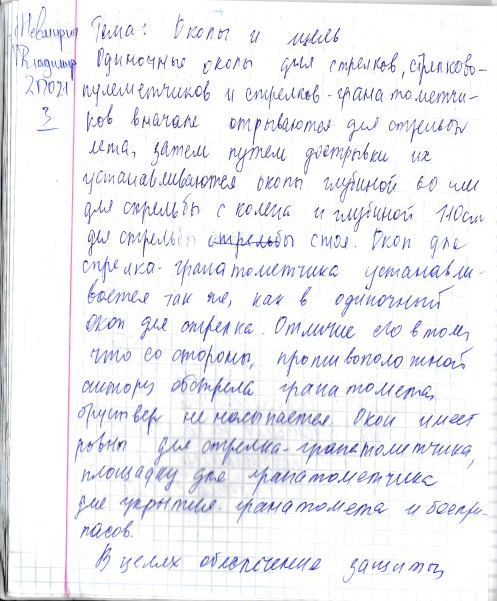 Владимир
2П021
3
Тема: Окопы и цель
Одиночные окопы для стрелков, стрелково-
пулеметчиков и стрелков-гранатометчи-
ков вначале отрываются для стрельбы
лежа, затем путем дострывки их
устанавливаются окопы глубиной 60 или
для стрельбы с колена и глубиной 110 см
для стрельбы стрельбы стоя. Окоп для
стрелка-гранатометчика устанавли-
вается так же, как в одиночный
окоп для стрелка. Отличие его в том,
что со стороны, противоположной
обстрела гранатомета,
бруствер не насыпается. Окоп имеет
ровны для стрелка-гранатометчика,
площадку для гранатометчика
для укрытия гранатомета и боепри-
пасов.
В целях обеспечения защиты